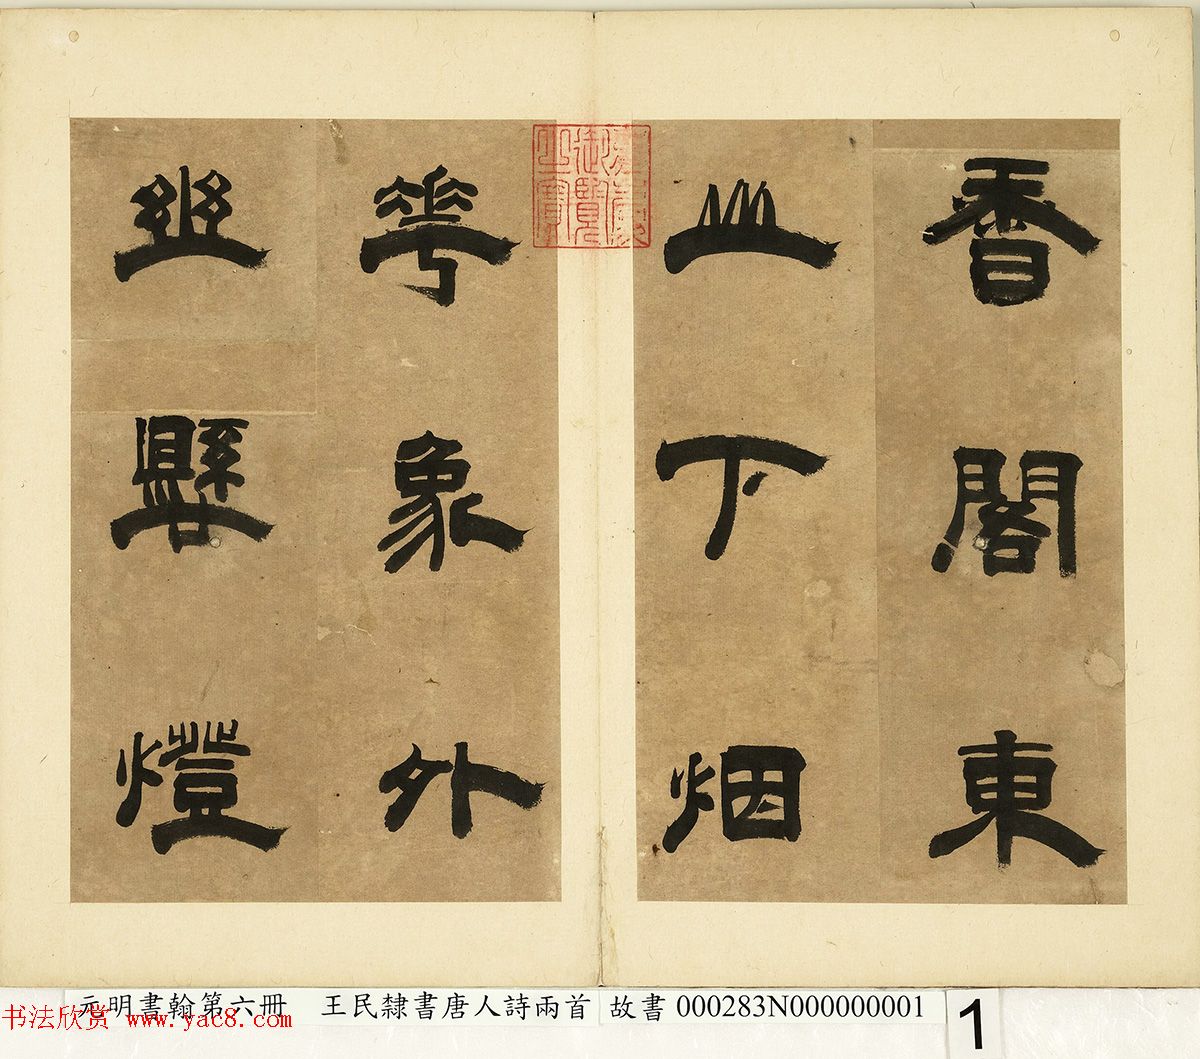 香閣東
山下烟
華象外
幽懸燈
元明書翰第六冊　王民隸書唐人詩兩首　故書 000283N000000001
1
书法欣赏 www.yac8.com